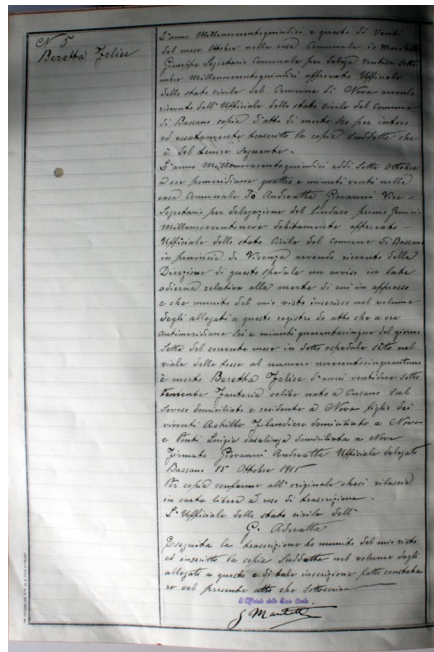 N 5
Beretta Felice
L'anno Millenovecentoquindici e questo dì Venti
del mese Ottobre nella casa Comunale io
Giuseppe Segretario Comunale per delega ventisei
Millenovecentoquindici approvata Ufficiale
dello stato civile del Comune di Nova avendo
ricevuto dall'Ufficiale dello stato civile del Comune
di Bassano copia d'atto di morte ho per intero
ed esattamente trascritto la copia suddetta che
è del tenore seguente.
L'anno Millenovecentoquindici addì sette Ottobre
a ore pomeridiane quattro e minuti venti nella
casa Comunale Io Andreatta Giovanni Vice
Segretario per delegazione del Sindaco primo
Millenovecentonove debitamente approvata
Ufficiale dello stato Civile del Comune di Bassano
in provincia di Vicenza avendo ricevuto dalla
Direzione di questo spedale un avviso in data
odierna relativo alla morte di cui in appresso
e che munito del mio visto inserisco nel volume
degli allegati a questo registro do atto che a ore
antimeridiane sei e minuti quarantacinque del giorno
sette del corrente mese in detto ospedale sito nel
viale delle fosse al numero novecentocinquantuno
è morto Beretta Felice d'anni ventidue sotto
tenente Fanteria celibe nato a Cusano sul
Seveso domiciliato e residente a Nova figlio dei
viventi Achille Filandiere domiciliato a Nova
e Ponti Luigia casalinga domiciliata a Nova
Firmato Giovanni Andreatta Ufficiale delegato
Bassano 15 Ottobre 1915
Per copia conforme all'originale che si rilascia
in carta libera ad uso di trascrizione.
L'Ufficiale dello stato civile
G. Andreatta
Eseguita la trascrizione ho munito del mio visto
ed inserito la copia suddetta nel volume degli
allegati a questo e di tale inscrizione fatto constare
col presente atto che sottoscrivo
L'Ufficiale dello Stato Civile